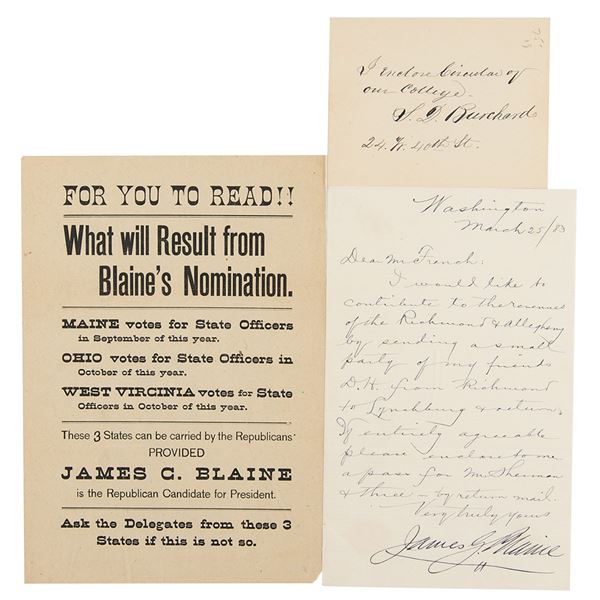 FOR YOU TO READ!!
What will Result from
Blaine's Nomination.
MAINE votes for State Officers
in September of this year.
OHIO votes for State Officers in
October of this year.
WEST VIRGINIA votes for State
Officers in October of this year.
These 3 States can be carried by the Republicans
PROVIDED
JAMES C. BLAINE
is the Republican Candidate for President.
Ask the Delegates from these 3
States if this is not so.
I enclose Circular of
our College.
S. D. Burchard
24. W. 40th St.
Washington
March 25/83
Dear Mr French:
I would like to
contribute to the revenues
of the Richmond & Allegheny
by sending a small
party of my friends
D.H. from Richmond
to Lynchburg & return.
If entirely agreeable
please enclose to me
a pass for Mr Sherman
& three – by return mail.
Very truly yours
James G. Blaine